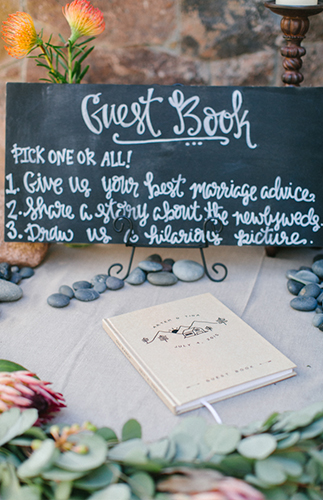 Guest Book
PICK ONE OR ALL!
1. Give us your best marriage advice.
2. Share a story about the newlyweds.
3. Draw us a hilarious picture.
GUEST BOOK